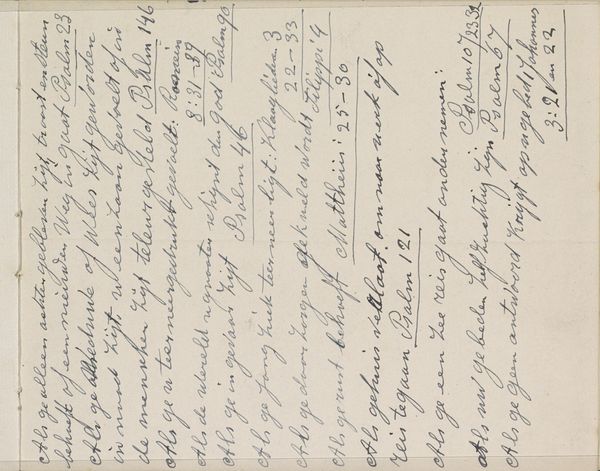 Als ge alleen achtergebleven zijt, troost en steun
behoeft of een nieuwen weg in gaat Psalm 23
Als ge alles of zijt geworden
in nood zijt, u eenzaam gevoelt of in
de menschen zijt teleurgesteld Psalm 146
Als ge u terneergedrukt gevoelt: Romeinen
8:31-39
Als de wereld u grooter schijnt dan God: Psalm 90
Als ge in gevaar zijt Psalm 46
Als ge lang ziek terneer ligt: Klaagliederen 3
22-33
Als ge door zorgen gekweld wordt Filippi 4
Als ge rust behoeft Mattheüs: 25-30
Als ge huis verlaat om naar werk of op
reis te gaan Psalm 121
Als ge een zee reis gaat ondernemen:
Psalm 107 23 32
Als uw gebeden zelfzuchtig zijn Psalm 67
Als ge geen antwoord krijgt op uw gebed: Johannes
3:21 en 22